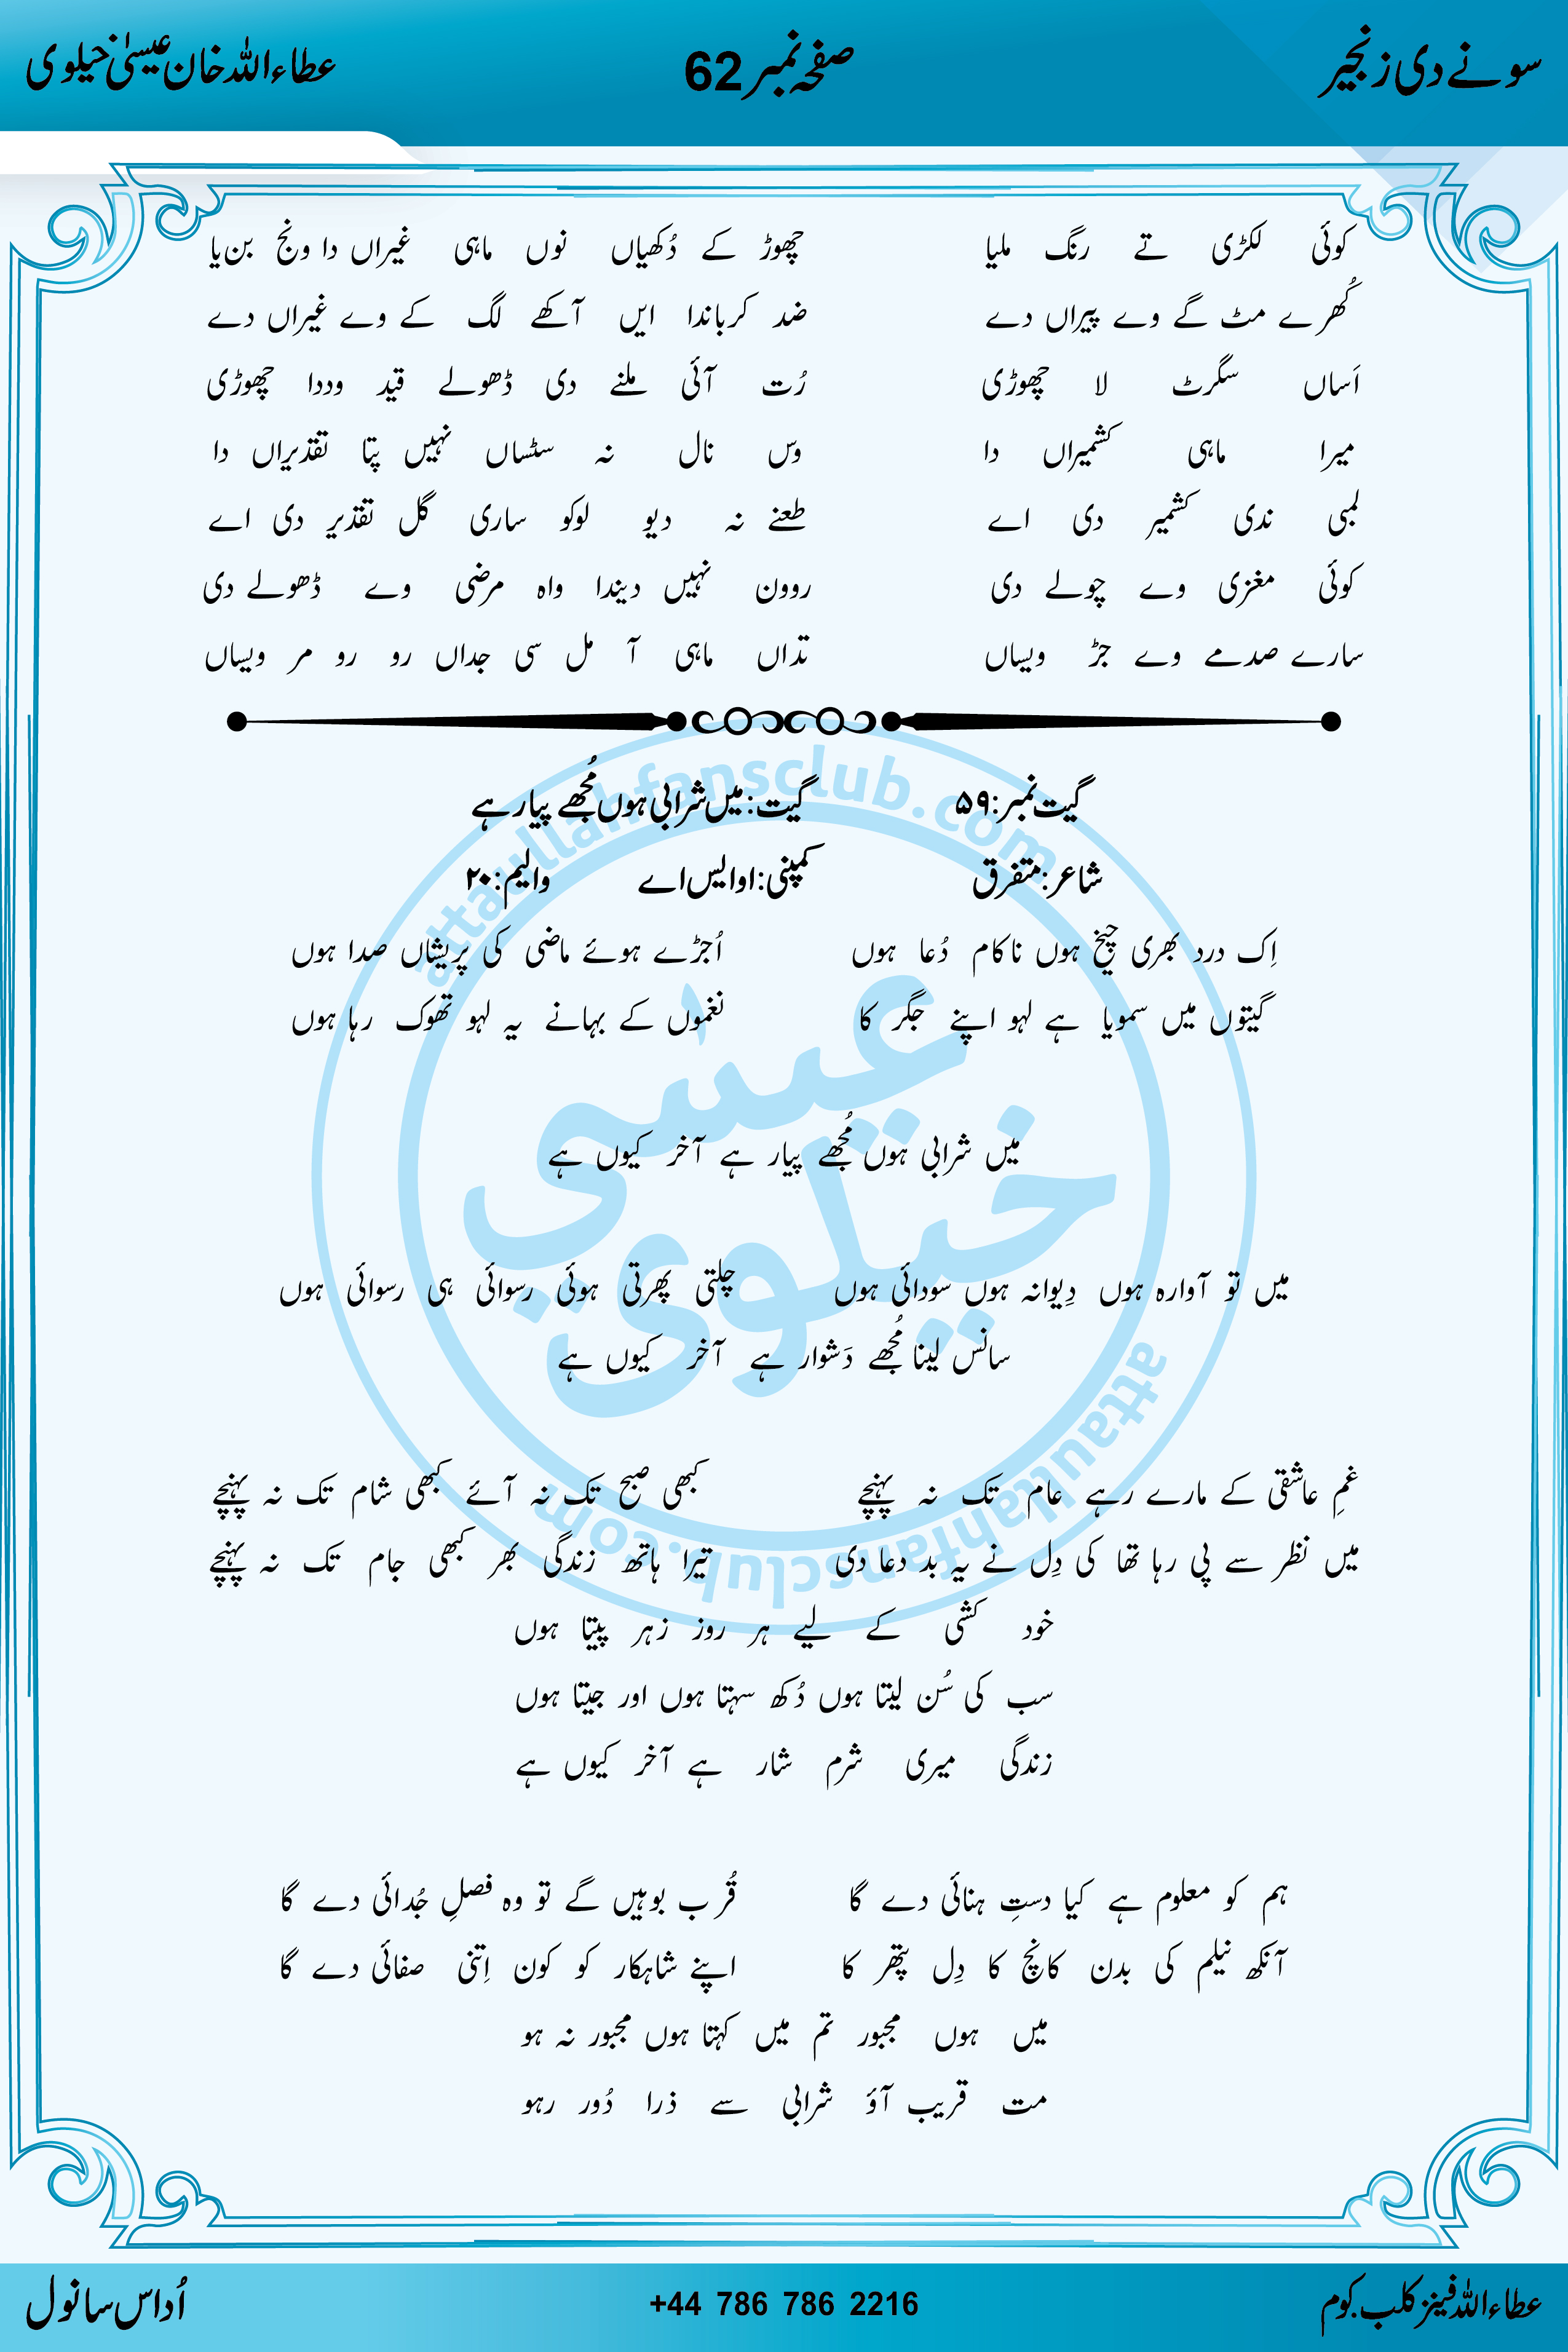 سونے دی زنجیر صفحہ نمبر 62 عطاء اللہ خان عیسیٰ خیلوی
کوئی لکڑی تے رنگ ملیا چھوڑ کے دُکھیاں نوں ماہی غیراں دا ونج بن یا
کُھرے مٹ گے وے پیراں دے ضد کرباندا ایں آکھے لگ کے وے غیراں دے
اَساں سگرٹ لا چھوڑی رُت آئی ملنے دی ڈھولے قید وددا چھوڑی
میرا ماہی کشمیراں دا وس نال نہ سٹساں نہیں پتا تقدیراں دا
لمبی ندی کشمیر دی اے طعنے نہ دیو لوکو ساری گل تقدیر دی اے
کوئی مغزی وے چولے دی روون نہیں دیندا واہ مرضی وے ڈھولے دی
سارے صدمے وے جڑ ویساں تداں ماہی آ مل سی جداں رو رو مر ویساں
گیت نمبر:۵۹ گیت: میں شرابی ہوں مُجھے پیار ہے
شاعر: متفرق کمپنی: او ایس اے والیم: ۲۰
اِک درد بھری چیخ ہوں ناکام دُعا ہوں اُجڑے ہوئے ماضی کی پریشاں صدا ہوں
گیتوں میں سمویا ہے لہو اپنے جگر کا نغموں کے بہانے یہ لہو تھوک رہا ہوں
میں شرابی ہوں مُجھے پیار ہے آخر کیوں ہے
میں تو آوارہ ہوں دِیوانہ ہوں سودائی ہوں چلتی پھرتی ہوئی رسوائی ہی رسوائی ہوں
سانس لینا مُجھے دَشوار ہے آخر کیوں ہے
غمِ عاشقی کے مارے رہے عام تک نہ پہنچے کبھی صبح تک نہ آئے کبھی شام تک نہ پہنچے
میں نظر سے پی رہا تھا کی دِل نے یہ بد دعا دی تیرا ہاتھ زندگی بھر کبھی جام تک نہ پہنچے
خود کشی کے لیے ہر روز زہر پیتا ہوں
سب کی سُن لیتا ہوں دُکھ سہتا ہوں اور جیتا ہوں
زندگی میری شرم شار ہے آخر کیوں ہے
ہم کو معلوم ہے کیا دستِ ہنائی دے گا قُرب بوہیں گے تو وہ فصلِ جُدائی دے گا
آنکھ نیلم کی بدن کانچ کا دِل پتھر کا اپنے شاہکار کو کون اِتنی صفائی دے گا
میں ہوں مجبور تم میں کہتا ہوں مجبور نہ ہو
مت قریب آؤ شرابی سے ذرا دُور رہو
attaullahfansclub.com
عیسٰی
خیلوی
attaullahfansclub.com
عطاء اللہ فینز کلب.کوم +44 786 786 2216 اُداس سانول